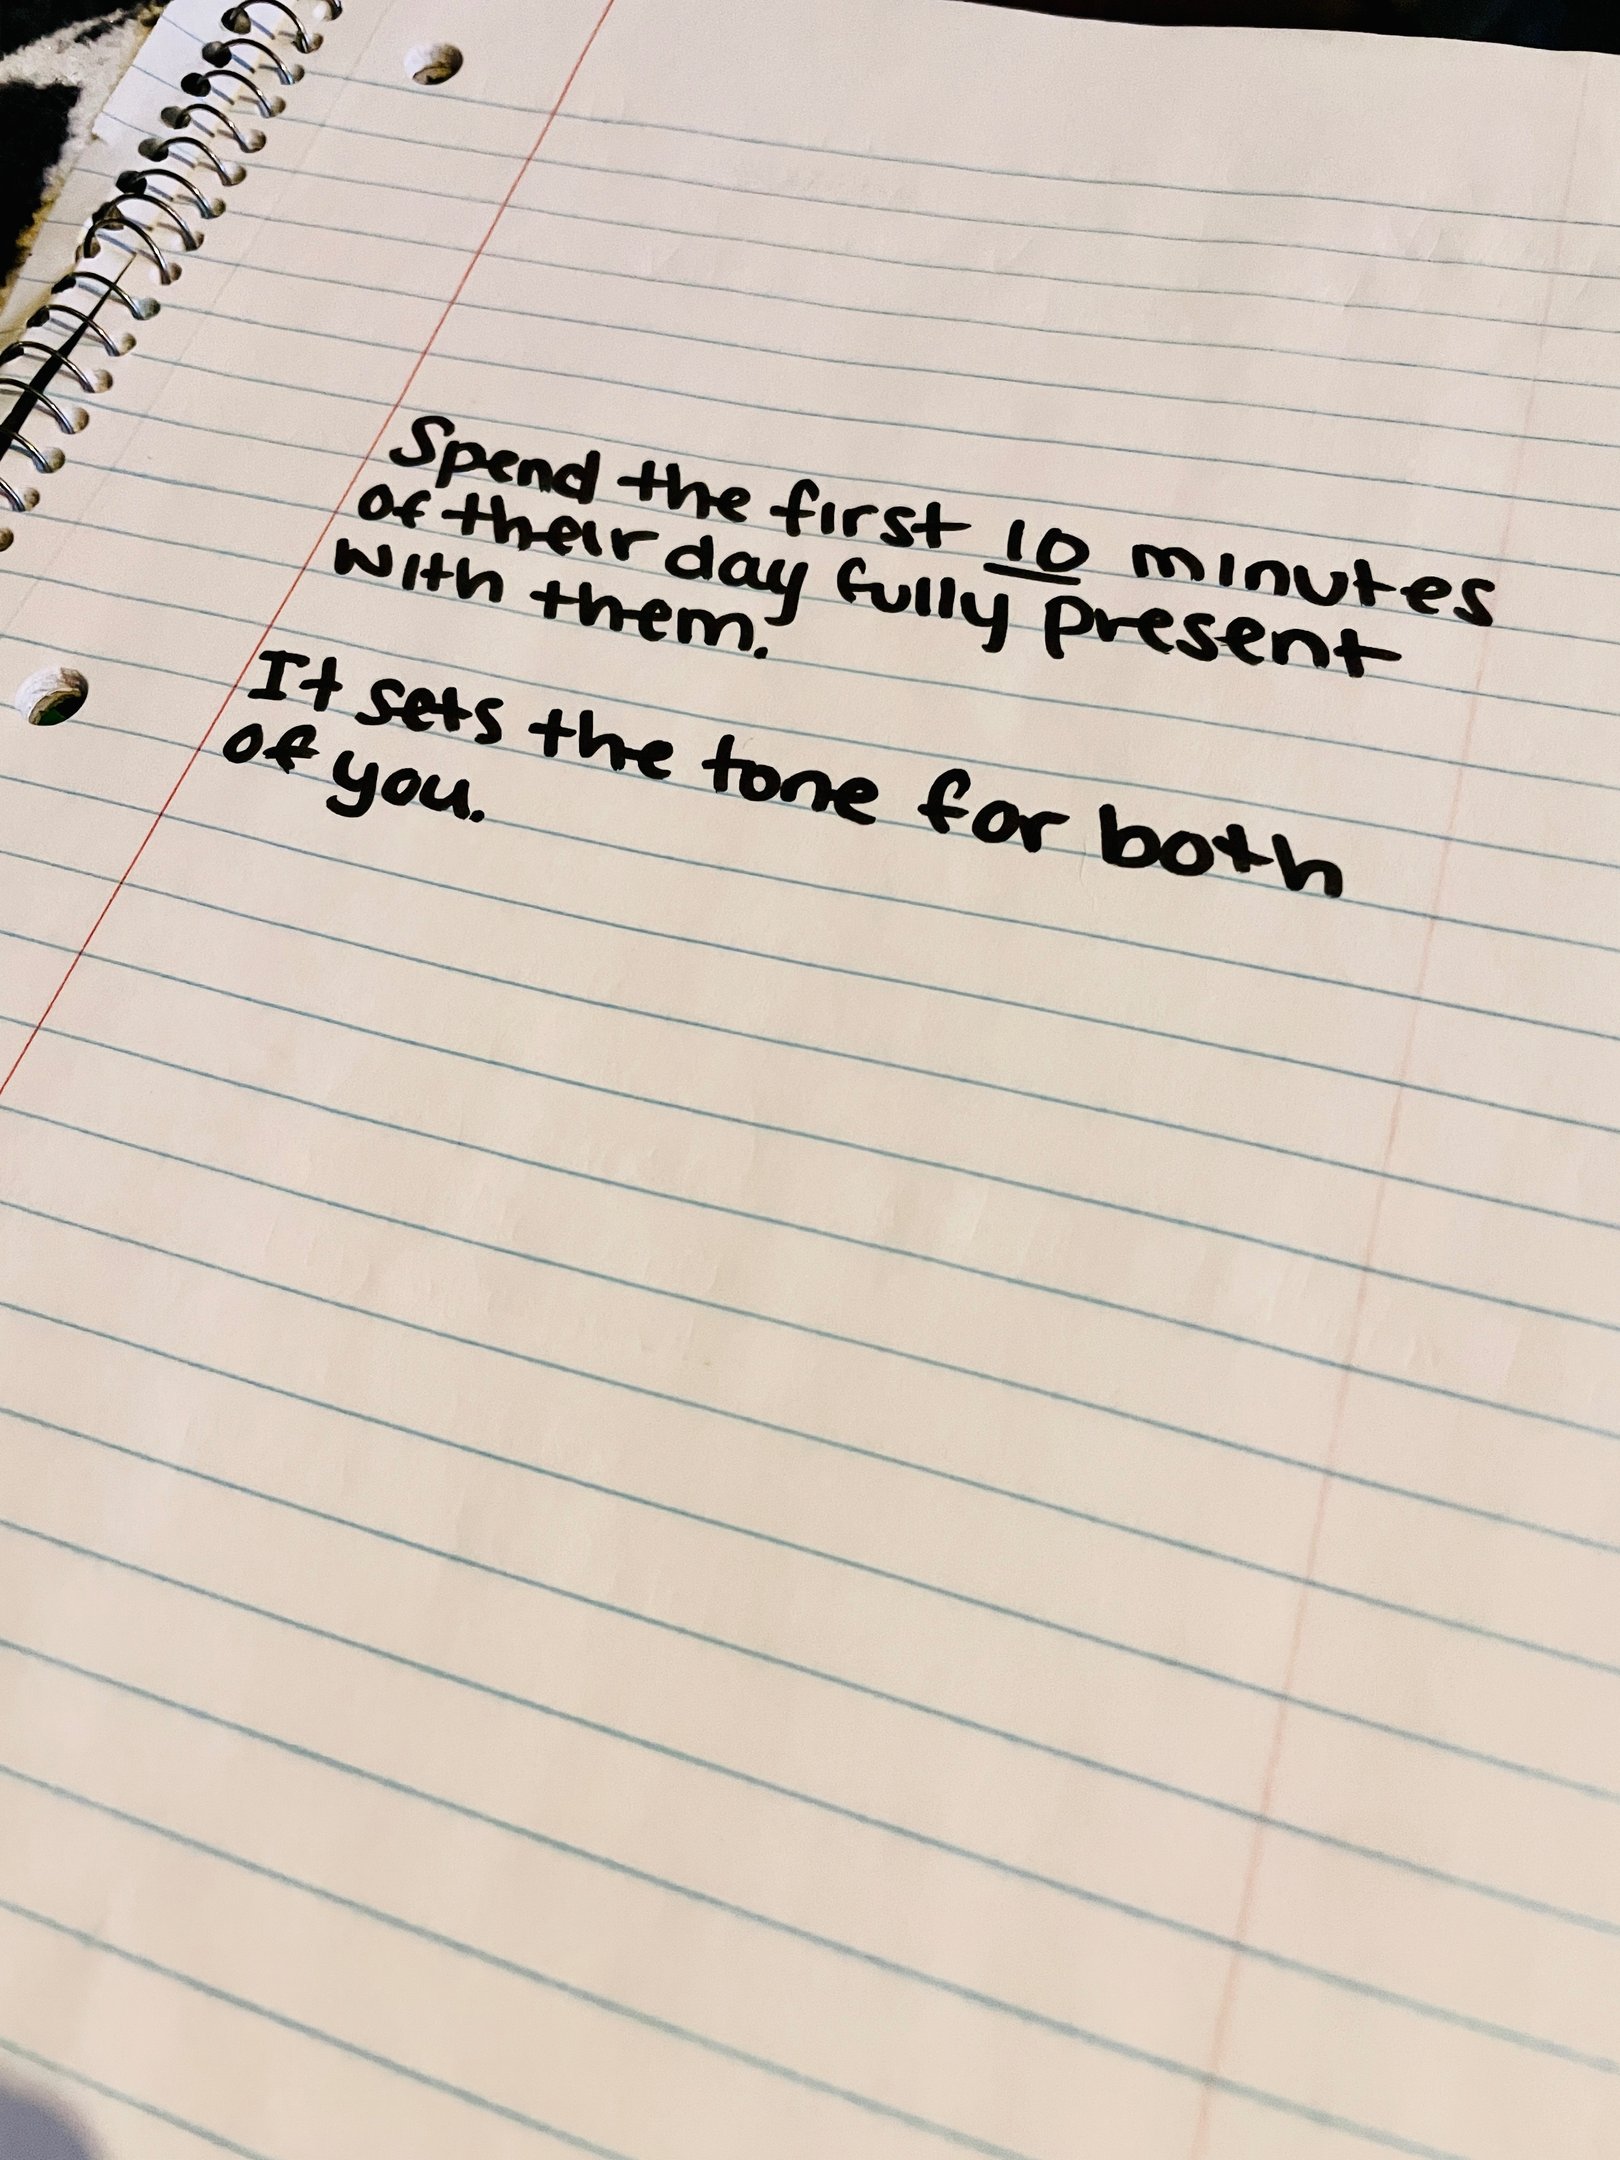 Spend the first 10 minutes
of their day fully present
with them.
It sets the tone for both
of you.